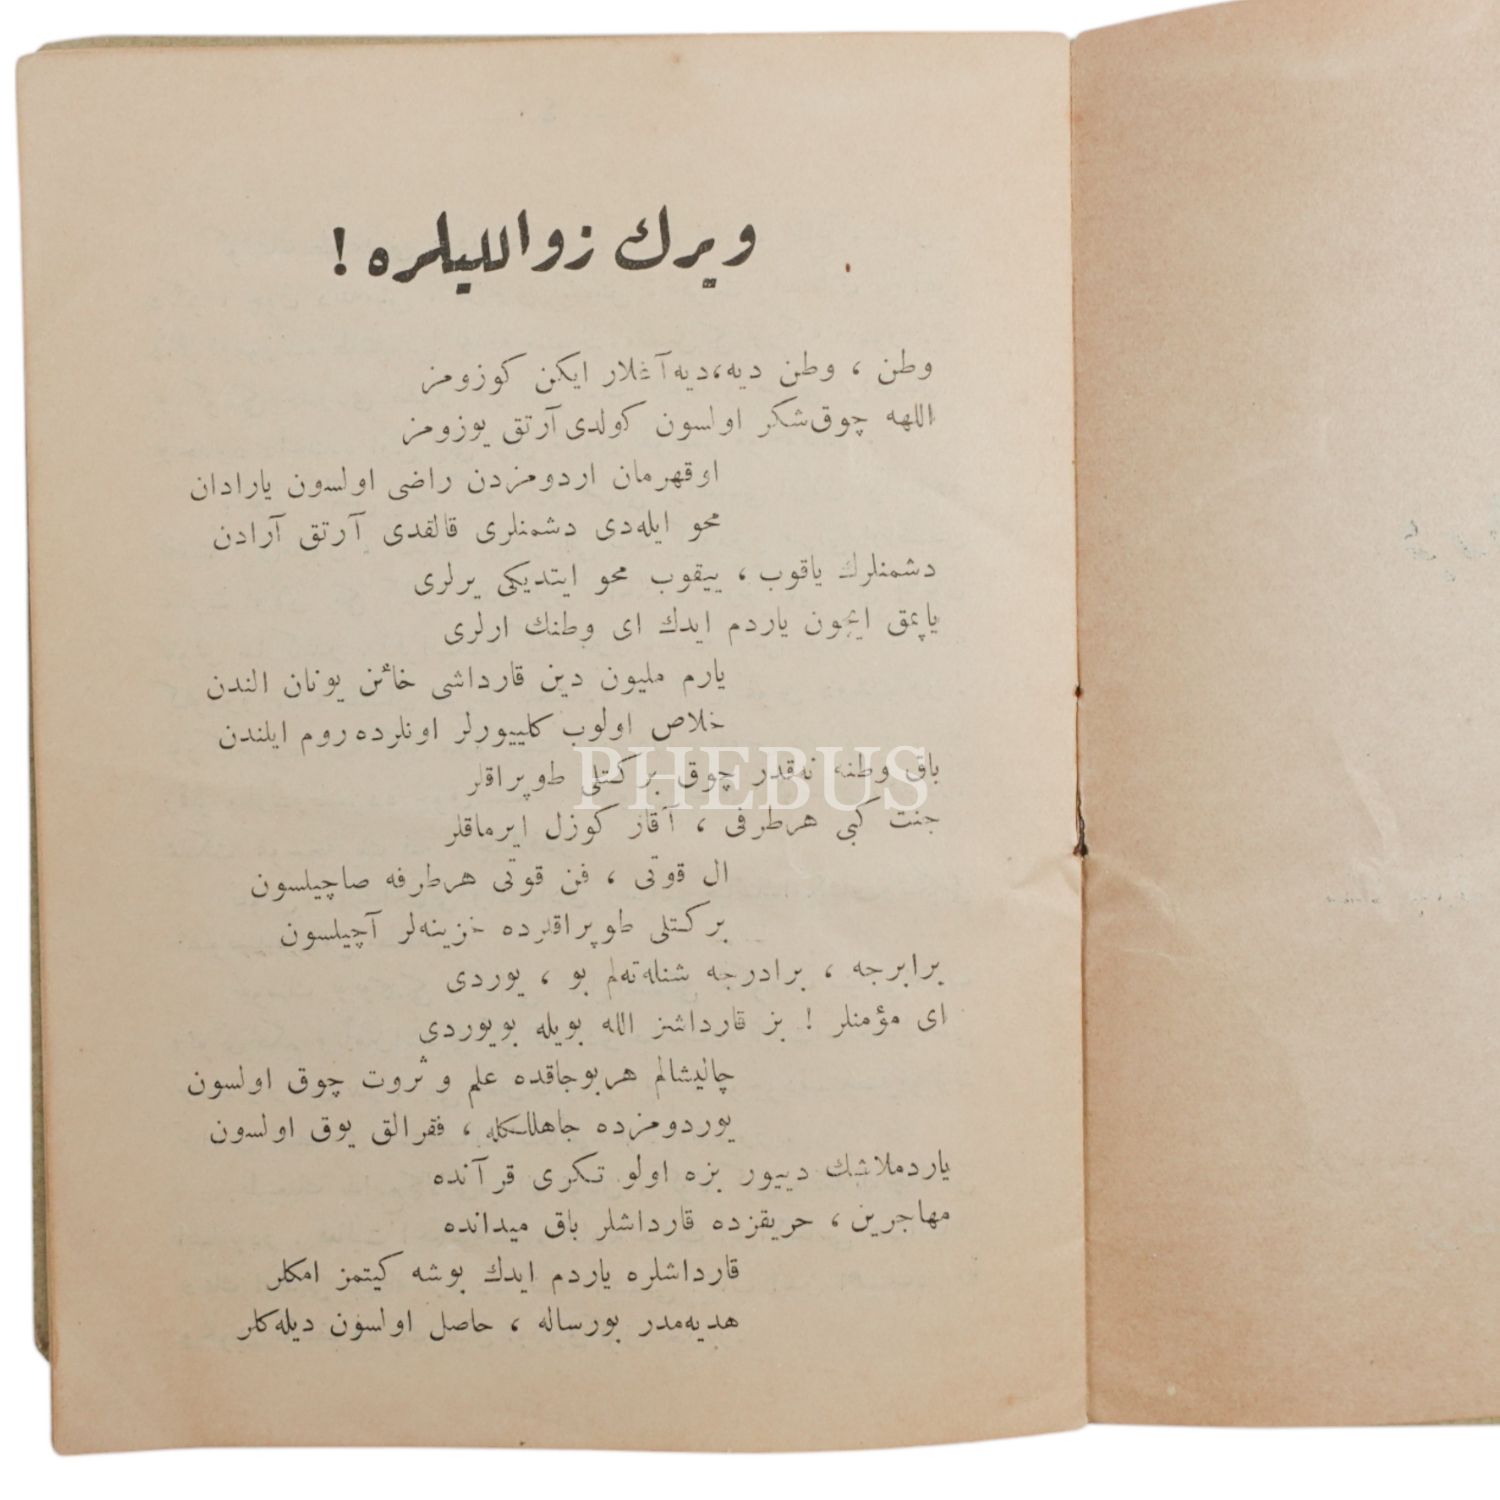 ويرك زواللیلره !
وطن ، وطن ديه،ديه آغلار ايكن كوزومز
اللهه چوق‌شكر اولسون كولدى آرتق يوزومز
اوقهرمان اردومزدن راضى اولسون يارادان
محو ايله‌دى دشمنلرى قالقدى آرتق آرادن
دشمنلرك ياقوب ، ييقوب محو ايتديكى يرلرى
ياپمق ايچون ياردم ايدك اى وطنك ارلرى
يارم مليون دين قارداشى خائن يونان الندن
خلاص اولوب كلييورلر اونلرده روم ايلندن
باق وطنه نه‌قدر چوق بركتلى طوپراقلر
جنت كبى هرطرفى ، آقار كوزل ايرماقلر
ال قوتى ، فن قوتى هرطرفه صاچيلسون
بركتلى طوپراقلرده خزينه‌لر آچيلسون
برابرجه ، برادرجه شنله‌ته‌لم بو ، يوردى
اى مؤمنلر ! بز قارداشز الله بويله بويوردى
چاليشالم هربوجاقده علم و ثروت چوق اولسون
يوردومزده جاهللكله ، فقرالق يوق اولسون
ياردملاشك دييور بزه اولو تكرى قرآنده
مهاجرين ، حريقزده قارداشلر باق ميدانده
قارداشلره ياردم ايدك بوشه كيتمز امكلر
هديه‌مدر بورساله ، حاصل اولسون ديله‌كلر
PHEBUS